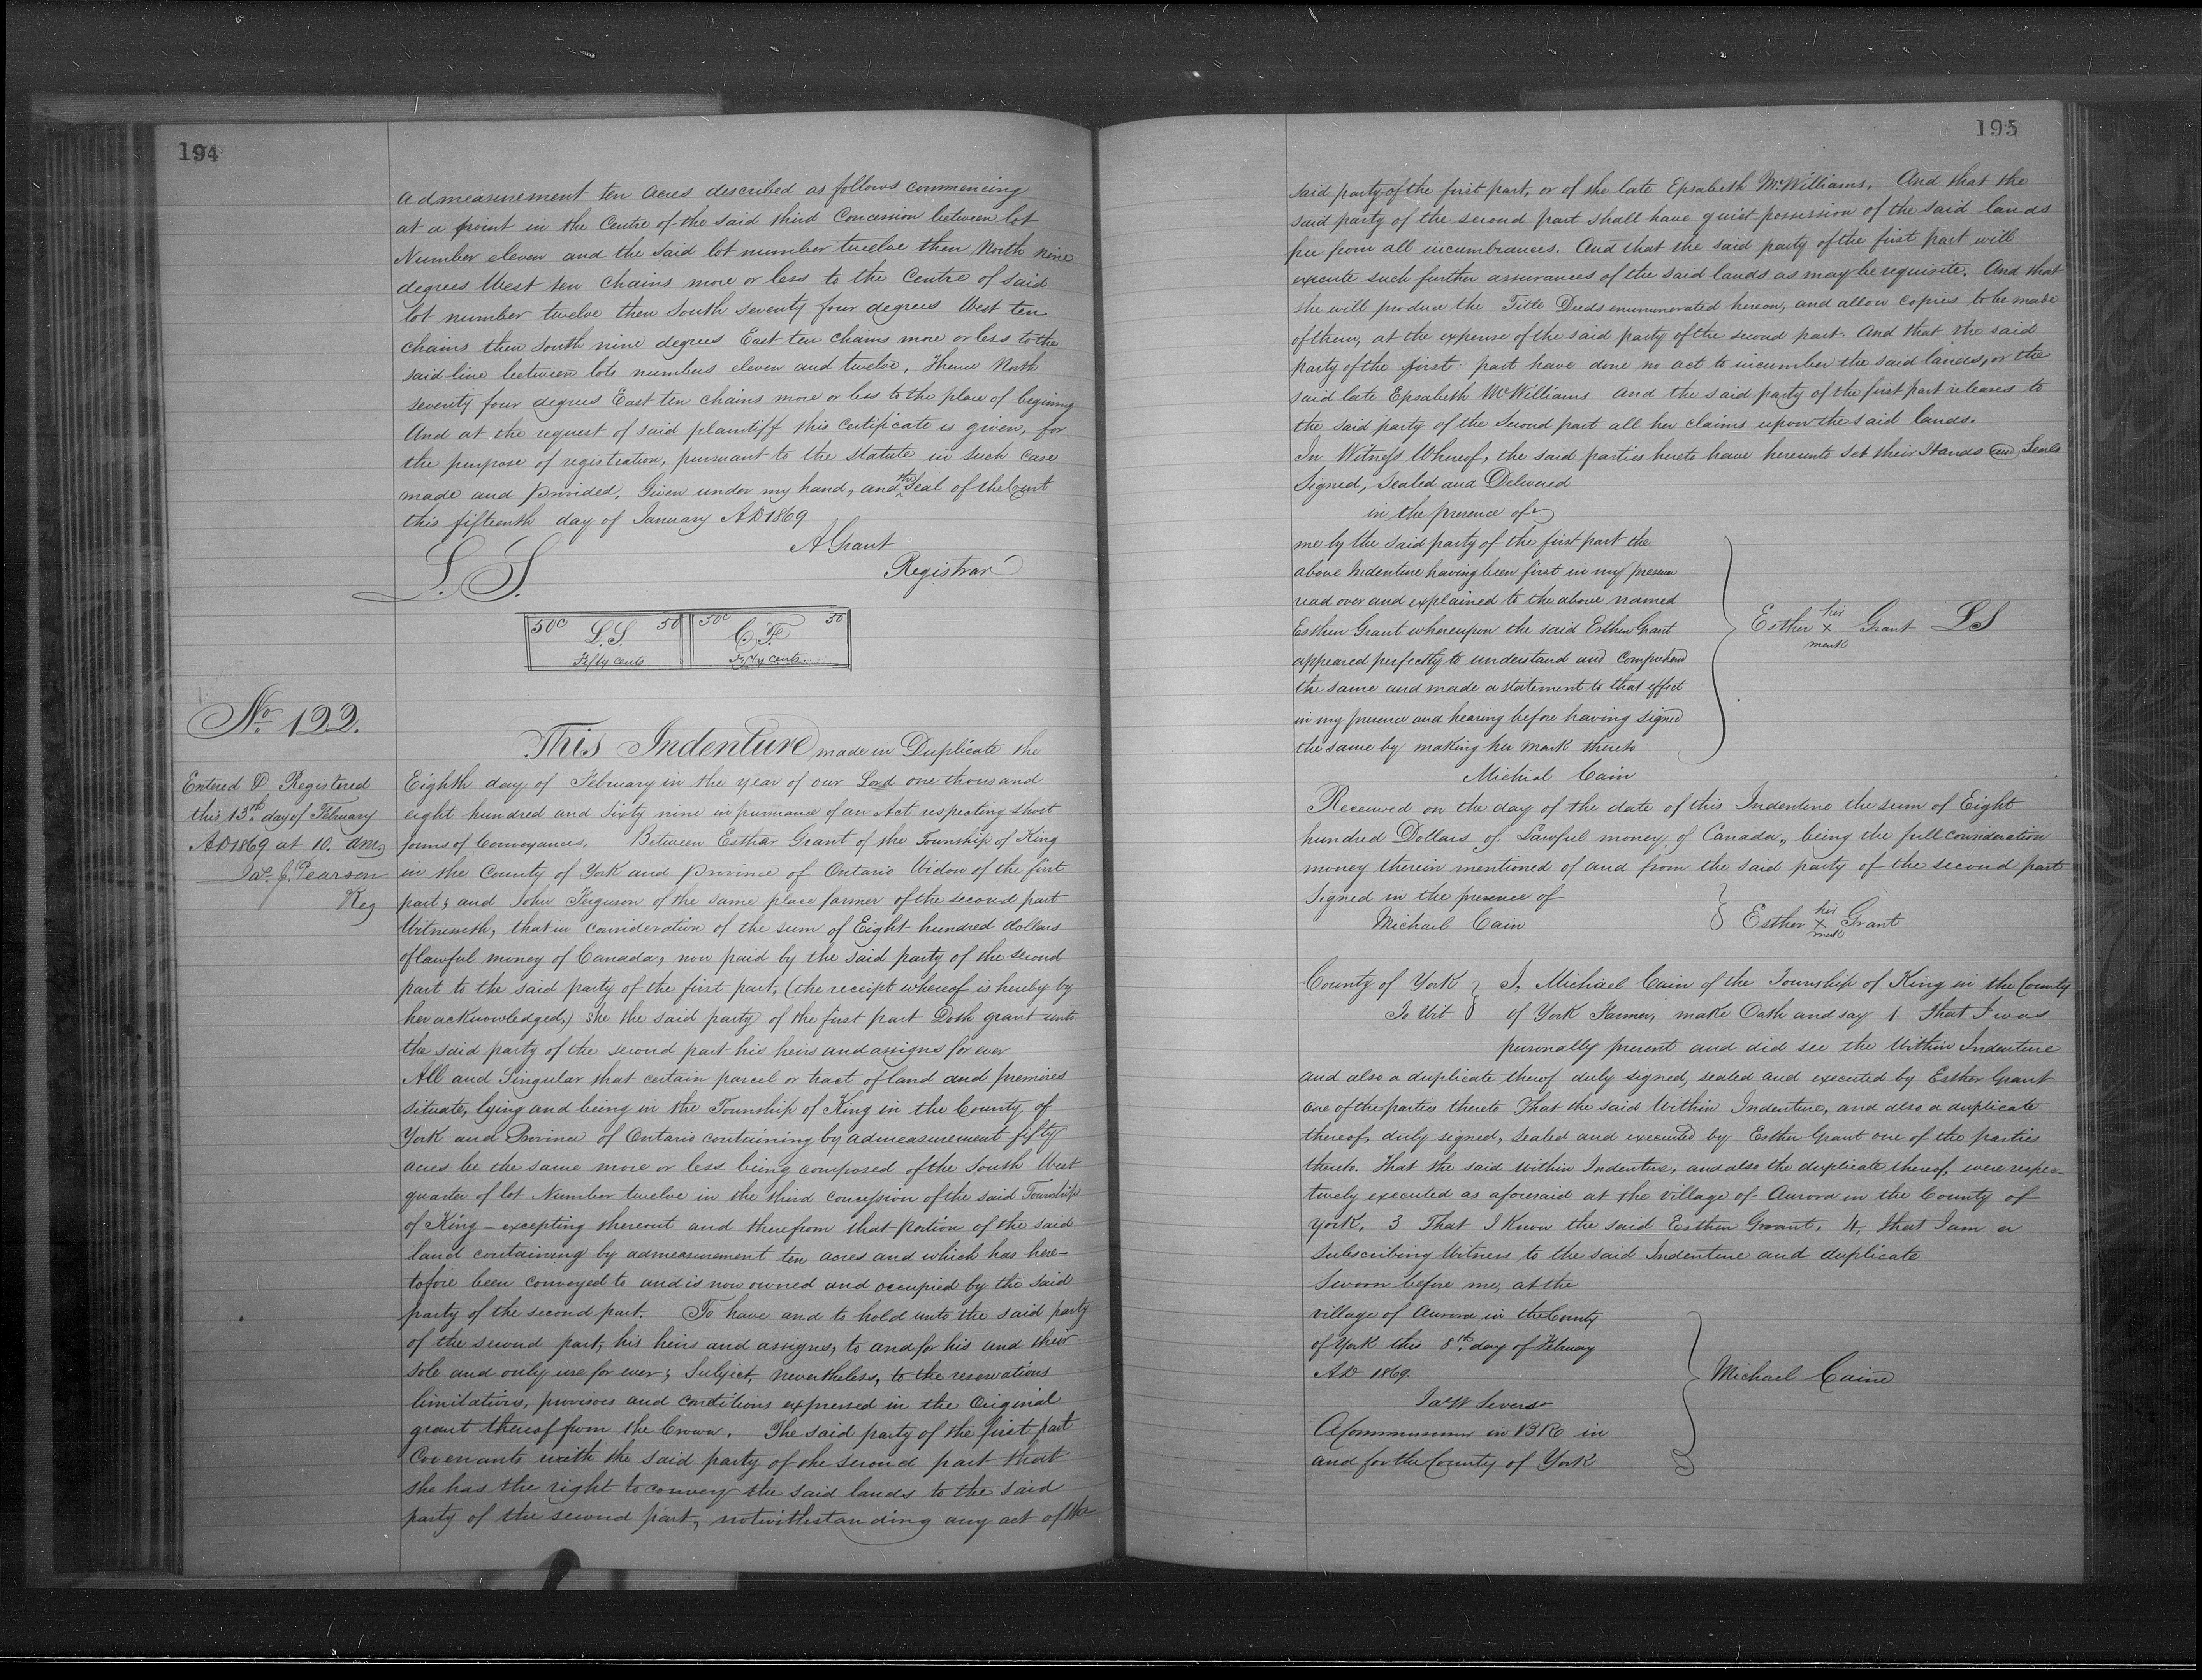 194
admeasurement ten acres described as follows commencing
at a point in the Centre of the said third Concession between lot
Number eleven and the said lot number twelve then North nine
degrees West ten Chains more or less to the Centre of said
lot number twelve then South seventy four degrees West ten
chains then South nine degrees East ten chains more or less to the
said line between lots numbers eleven and twelve, Thence North
seventy four degrees East ten chains more or less to the place of begining
And at the request of said plaintiff this Certificate is given, for
the purpose of registration, pursuant to the Statute in such case
made and provided, Given under my hand, and the Seal of the Court
this fifteenth day of January AD 1869
A Grant
L.S. Registrar
50c L.S. 50 50c C.F. 50
Fifty cents Fifty cents
No. 122.
This Indenture made in Duplicate the
Entered & Registered
this 13th day of February
AD 1869 at 10. am,
Jas. J. Pearson
Reg
Eighth day of February in the year of our Lord one thousand
eight hundred and Sixty nine in pursuance of an Act respecting short
forms of Conveyances. Between Esthar Grant of the Township of King
in the County of York and province of Ontario Widow of the first
part; and John Ferguson of the same place farmer of the second part
Witnesseth, that in consideration of the sum of Eight hundred dollars
of lawful money of Canada, now paid by the said party of the second
part to the said party of the first part, (the receipt whereof is hereby by
her acknowledged,) She the said party of the first part Doth grant unto
the said party of the second part his heirs and assigns for ever
All and Singular that certain parcel or tract of land and premises
situate, lying and being in the Township of King in the County of
York and Province of Ontario containing by admeasurement fifty
acres be the same more or less being composed of the South West
quarter of lot Number twelve in the third concession of the said Township
of King - excepting thereout and therefrom that portion of the said
land containing by admeasurement ten acres and which has here-
tofore been conveyed to and is now owned and occupied by the said
party of the second part. To have and to hold unto the said party
of the second part, his heirs and assigns, to and for his and their
sole and only use for ever; Subject, nevertheless, to the reservations
limitations, provisoes and conditions expressed in the Original
grant thereof from the Crown. The said party of the first part
Covenants with the said party of the second part that
she has the right to convey the said lands to the said
party of the second part, notwithstanding any act of the
195
said party of the first part, or of the late Epsabeth McWilliams, And that the
said party of the second part shall have quiet possession of the said lands
free from all incumbrances. And that the said party of the first part will
execute such further assurances of the said lands as may be requisite. And that
she will produce the Title Deeds enumunerated hereon, and allow copies to be made
of them, at the expense of the said party of the second part. And that the said
party of the first part have done no act to incumber the said lands, or the
said late Epsabeth McWilliams and the said party of the first part releases to
the said party of the Second part all her claims upon the said lands.
In Witness Whereof, the said parties hereto have hereunto Set their Hands and Seals
Signed, Sealed and Delivered
in the presence of
me by the said party of the first part the
above Indenture having been first in my presence
read over and explained to the above named
Esther Grant whereupon the said Esther Grant
appeared perfectly to understand and Comprehend
the same and made a statement to that effect
in my presence and hearing before having signed
the same by making her mark thereto
Esther his x mark Grant LS
Michial Cain
Received on the day of the date of this Indenture the sum of Eight
hundred Dollars of Lawful money of Canada, being the full consideration
money therein mentioned of and from the said party of the second part
Signed in the presence of
Michael Cain
Esther his x mark Grant
County of York I, Michael Cain of the Township of King in the County
To Wit of York Farmer, make Oath and say 1. that I was
personally present and did see the Within Indenture
and also a duplicate thereof duly signed, sealed and executed by Esther Grant
one of the parties thereto That the said Within Indenture, and also a duplicate
thereof, duly signed, Sealed and executed by Esther Grant one of the parties
thereto. That the said within Indenture, and also the duplicate thereof, were respec-
tively executed as aforesaid at the village of Aurora in the County of
York, 3 That I know the said Esther Grant, 4, that I am a
Subscribing Witness to the said Indenture and duplicate
Sworn before me, at the
village of Aurora in the County
of York this 8th day of February
AD 1869.
Michael Caine
Jas W Severs
A Commissioner in BR in
and for the County of York